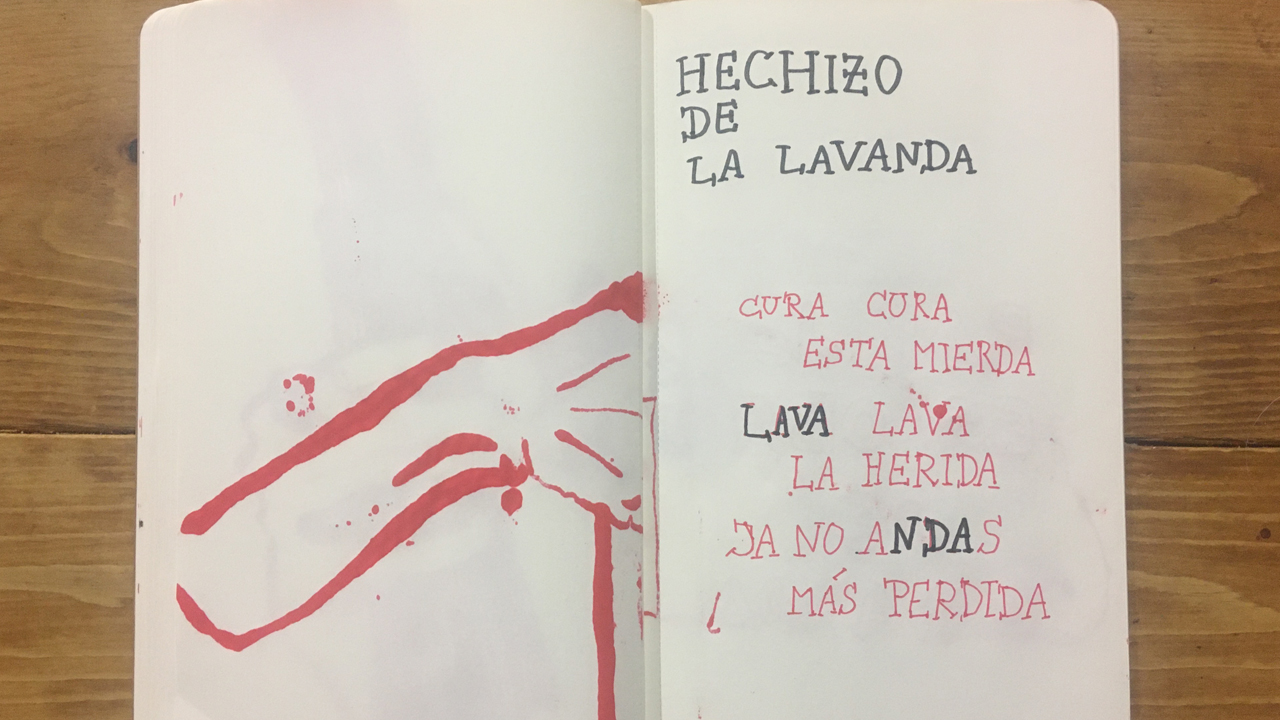 HECHIZO
DE
LA LAVANDA
CURA CURA
ESTA MIERDA
LAVA LAVA
LA HERIDA
JA NO ANDAS
MÁS PERDIDA